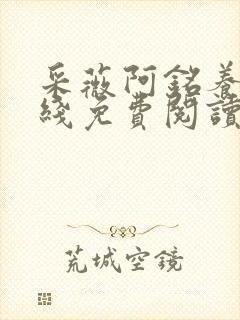 采薇阿銘養
綫免費閱讀
荒城空鏡